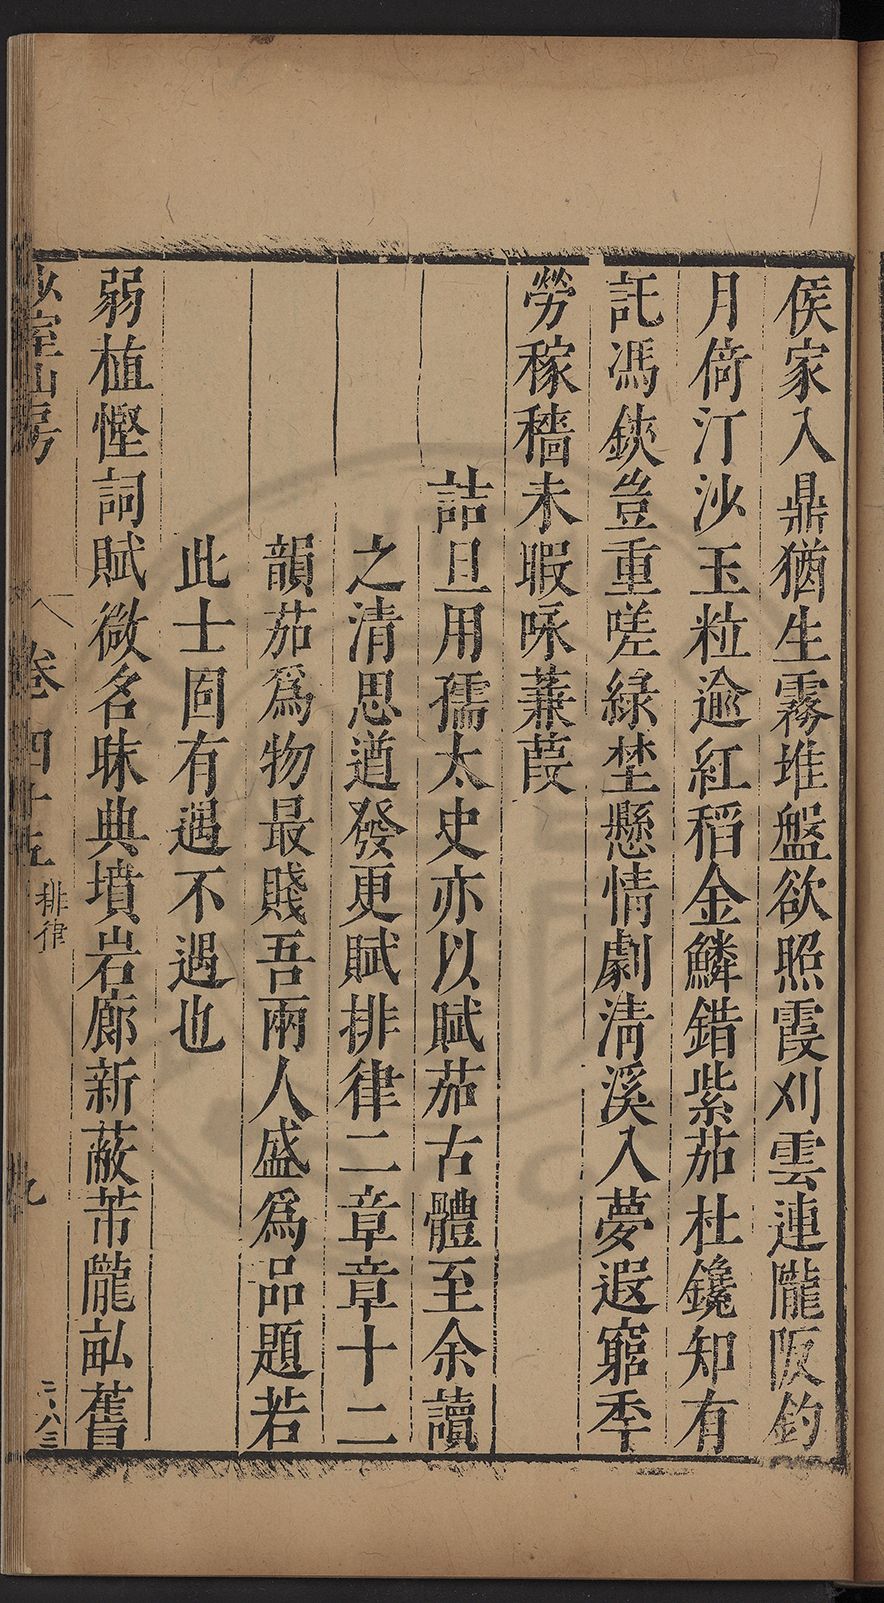 侯家入鼎猶生霧堆盤欲照霞刈雲連隴阪釣
月倚汀沙玉粒逾紅稻金鱗錯紫茄杜鑱知有
託馮鋏豈重嗟綠埜懸情劇淸溪入夢遐窮年
勞稼穡未暇咏蒹葭
詰旦用孺太史亦以賦茄古體至余讀
之清思遒發更賦排律二章章十二
韻茄爲物最賤吾兩人盛爲品題若
此士固有遇不遇也
弱植慳詞賦微名昧典墳岩廊新蔽芾隴畝舊
少室山房
卷四十五 排律
九